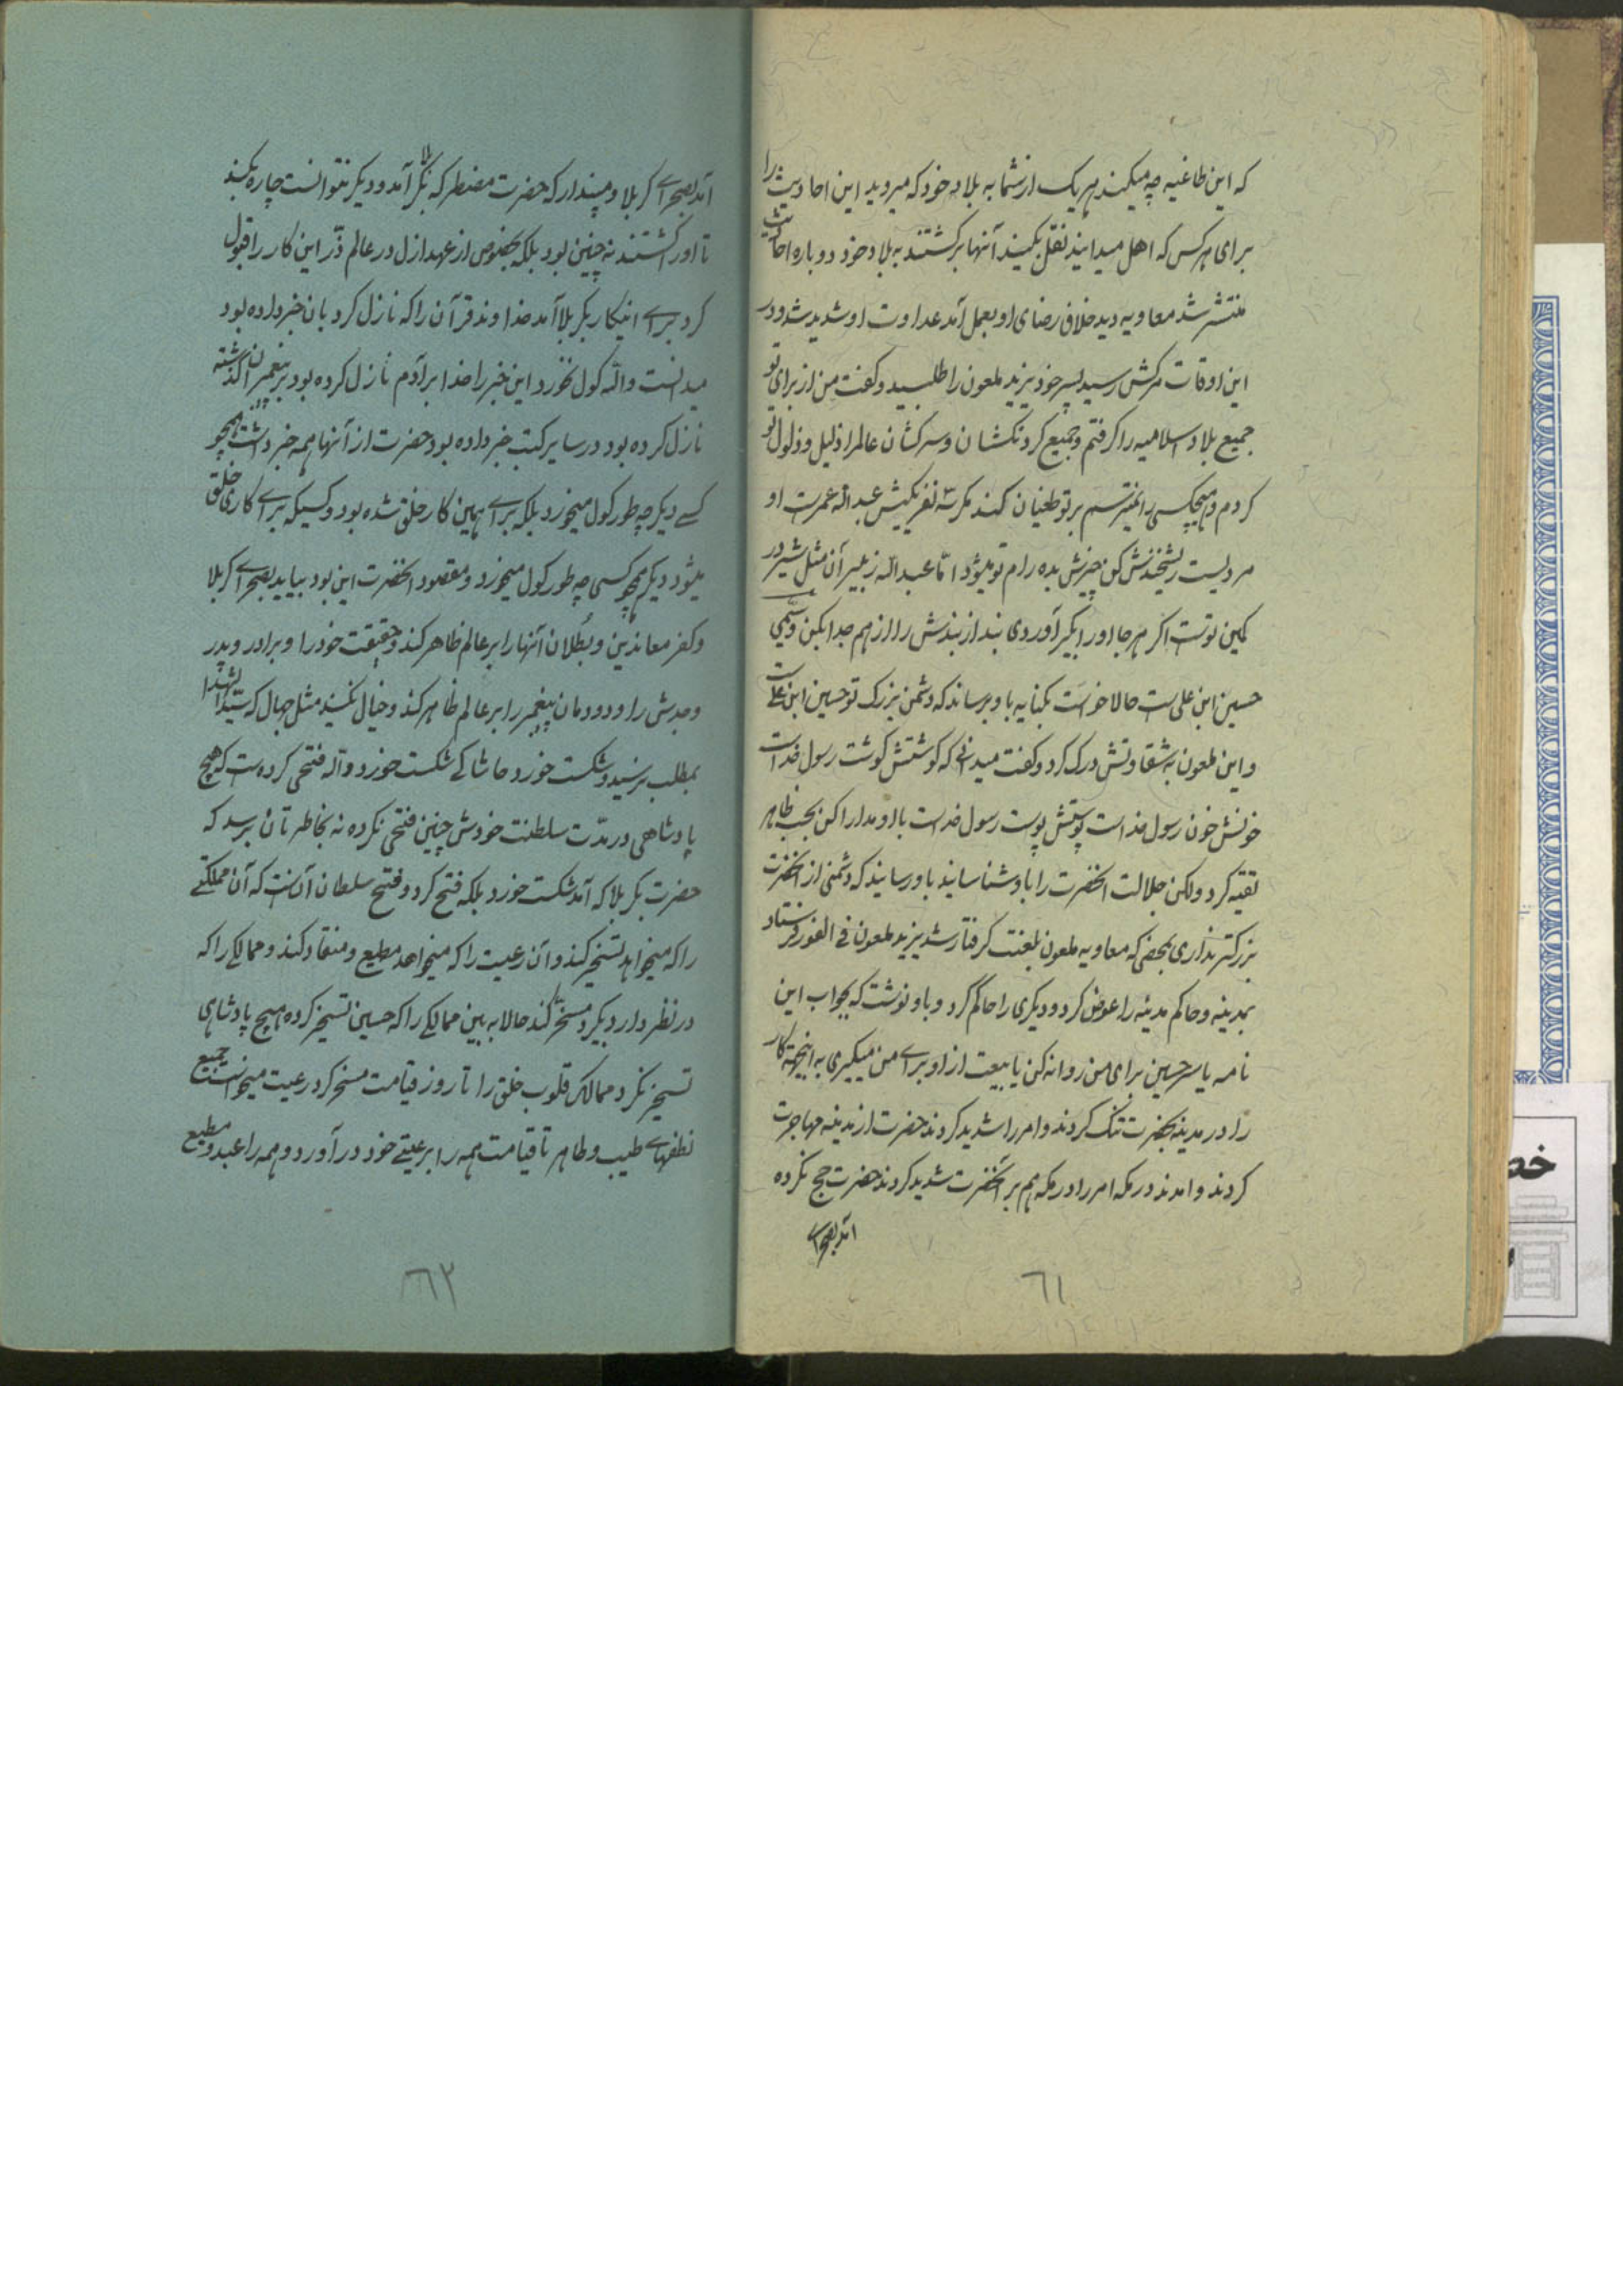 که این طاغیه چه میکند هر یک از شما به بلاد خود که میروید این احادیث را
برای هر کس که اهل میدانید نقل بکنید آنها برگشتند به بلاد خود دوباره احادیث
منتشر شد معاویه دید خلاف رضای او بعمل آمد عداوت او شدید شد و در
این اوقات مرکش رسید پسر خود یزید ملعون را طلبید و کفت من از برای تو
جمیع بلاد اسلامیه را کرفتم و جمیع کردنکشان و سرکشان عالم را ذلیل و ذلول تو
کردم و هیچکس را نمیترسم بر تو طغیان کند مکر سه نفر یکیش عبدالله عمرت او
مردیست ریشخندش کن چیزش بده رام تو میشود امّا عبدالله زبیر آن مثل شیر در
کمین توست اکر هر جا او را بکیر آوردی بند از بندش را از هم جدا بکن و سیّمی
حسین ابن علی ست حالا خواست بکنایه باو برساند که دشمن بزرک تو حسین ابن علیست
و این ملعون به شقاوتش درک کرد و کفت میدانی که کوشتش کوشت رسول خداست
خونش خون رسول خداست پوستش پوست رسول خداست با او مدارا کن بحسب ظاهر
تقیّه کرد ولکن جلالت آنحضرت را باو شناسانید باو رسانید که دشمنی از آنحضرت
بزرکتر نداری بمحض که معاویه ملعون بلعنت کرفتار شد یزید ملعون فی الفور فرستاد
بمدینه و حاکم مدینه را عوض کرد و دیکری را حاکم کرد و باو نوشت که بجواب این
نامه یا سر حسین برای من روانه کن یا بیعت از او برای من میکیری به اینجهة کار
را در مدینه بحضرت تنک کردند و امر را شدید کردند حضرت از مدینه مهاجرت
کردند و امدند در مکه امر را در مکه هم بر آنحضرت شدید کردند حضرت حج نکرده
آمد بصحرای
٦١
آمد بصحرای کربلا و مپندار که حضرت مضطر که بکربلا آمد و دیکر نتوانست چاره بکند
تا او را کشتند نه چنین بود بلکه بخصوص از عهد ازل در عالم ذرّ این کار را قبول
کرد برای اینکار بکربلا آمد خداوند قرآن را که نازل کرد بان خبر داده بود
میدانست والله کول نخورد این خبر را خدا بر آدم نازل کرده بود بر پیغمبران کذشته
نازل کرده بود در سایر کتب خبر داده بود حضرت از آنها همه خبر داشت همچو
کسی دیکر چه طور کول میخورد بلکه برای همین کار خلق شده بود و کسیکه برای کاری خلق
میشود دیکر همچو کسی چه طور کول میخورد و مقصود آنحضرت این بود بیاید بصحرای کربلا
و کفر معاندین و بُطلان آنها را بر عالم ظاهر کند و حقیقت خود را و برادر و پدر
و جدش را و دودمان پیغمبر را بر عالم ظاهر کند و خیال نکنید مثل جهال که سیّد الشهدا
بمطلب نرسید و شکست خورد حاشا کی شکست خورد والله فتحی کرده ست که هیچ
پادشاهی در مدّت سلطنت خودش چنین فتحی نکرده نه بخاطرتان برسد که
حضرت بکربلا که آمد شکست خورد بلکه فتح کرد و فتح سلطان آنست که آن مملکتی
را که میخواهد تسخیر کند و آن رعیت را که میخواهد مطیع و منقاد کند و ممالکی را که
در نظر دارد بکیرد مسخّر کند حالا به بین ممالکی را که حسین تسخیر کرده هیچ پادشاهی
تسخیر نکرد ممالک قلوب خلق را تا روز قیامت مسخر کرد رعیت میخواست جمیع
نطفهای طیب و طاهر تا قیامت همه را برعیتی خود در آورد و همه را عبد و مطیع
٦٢
خص